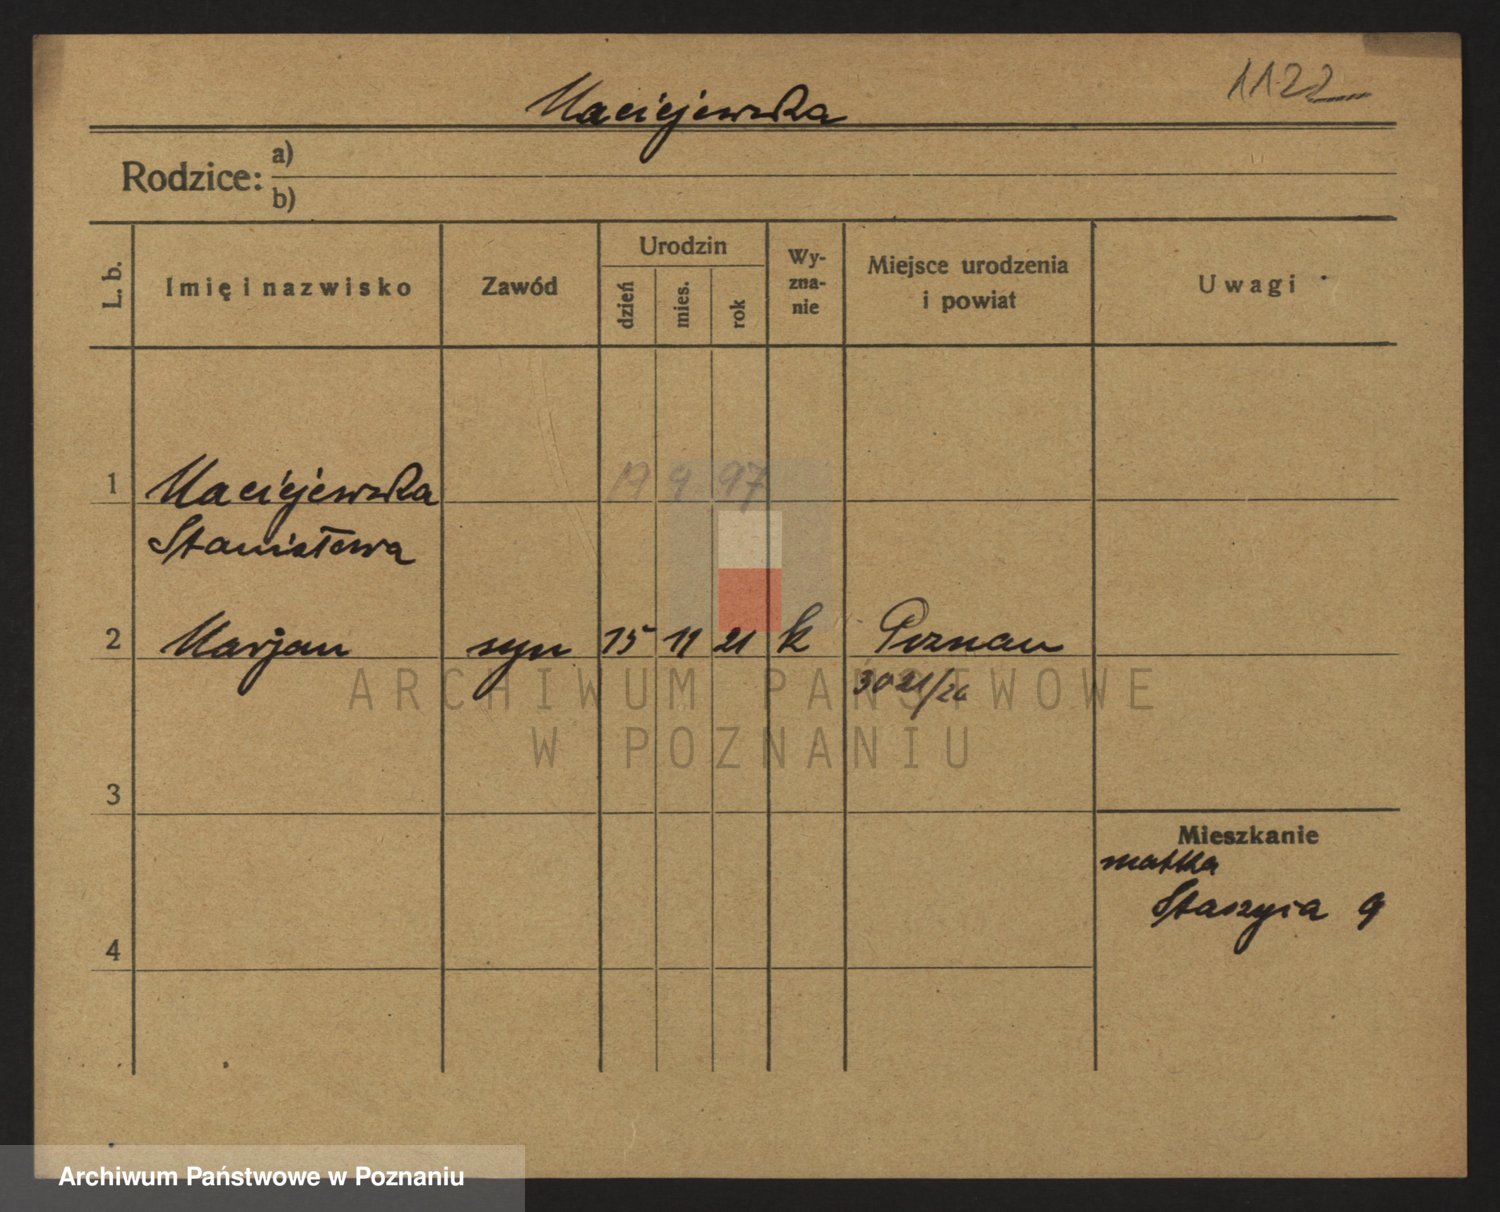 1122
Maciejewska
Rodzice: a)
b)
L. b.
Imię i nazwisko
Zawód
Urodzin
dzień
mies.
rok
Wy-
zna-
nie
Miejsce urodzenia
i powiat
Uwagi
1 Maciejewska 19 9 97
Stanisława
2 Marjan syn 15 11 21 k Poznan
3021/26
ARCHIWUM PAŃSTWOWE
W POZNANIU
3
Mieszkanie
matka
Staszyca 9
4
Archiwum Państwowe w Poznaniu